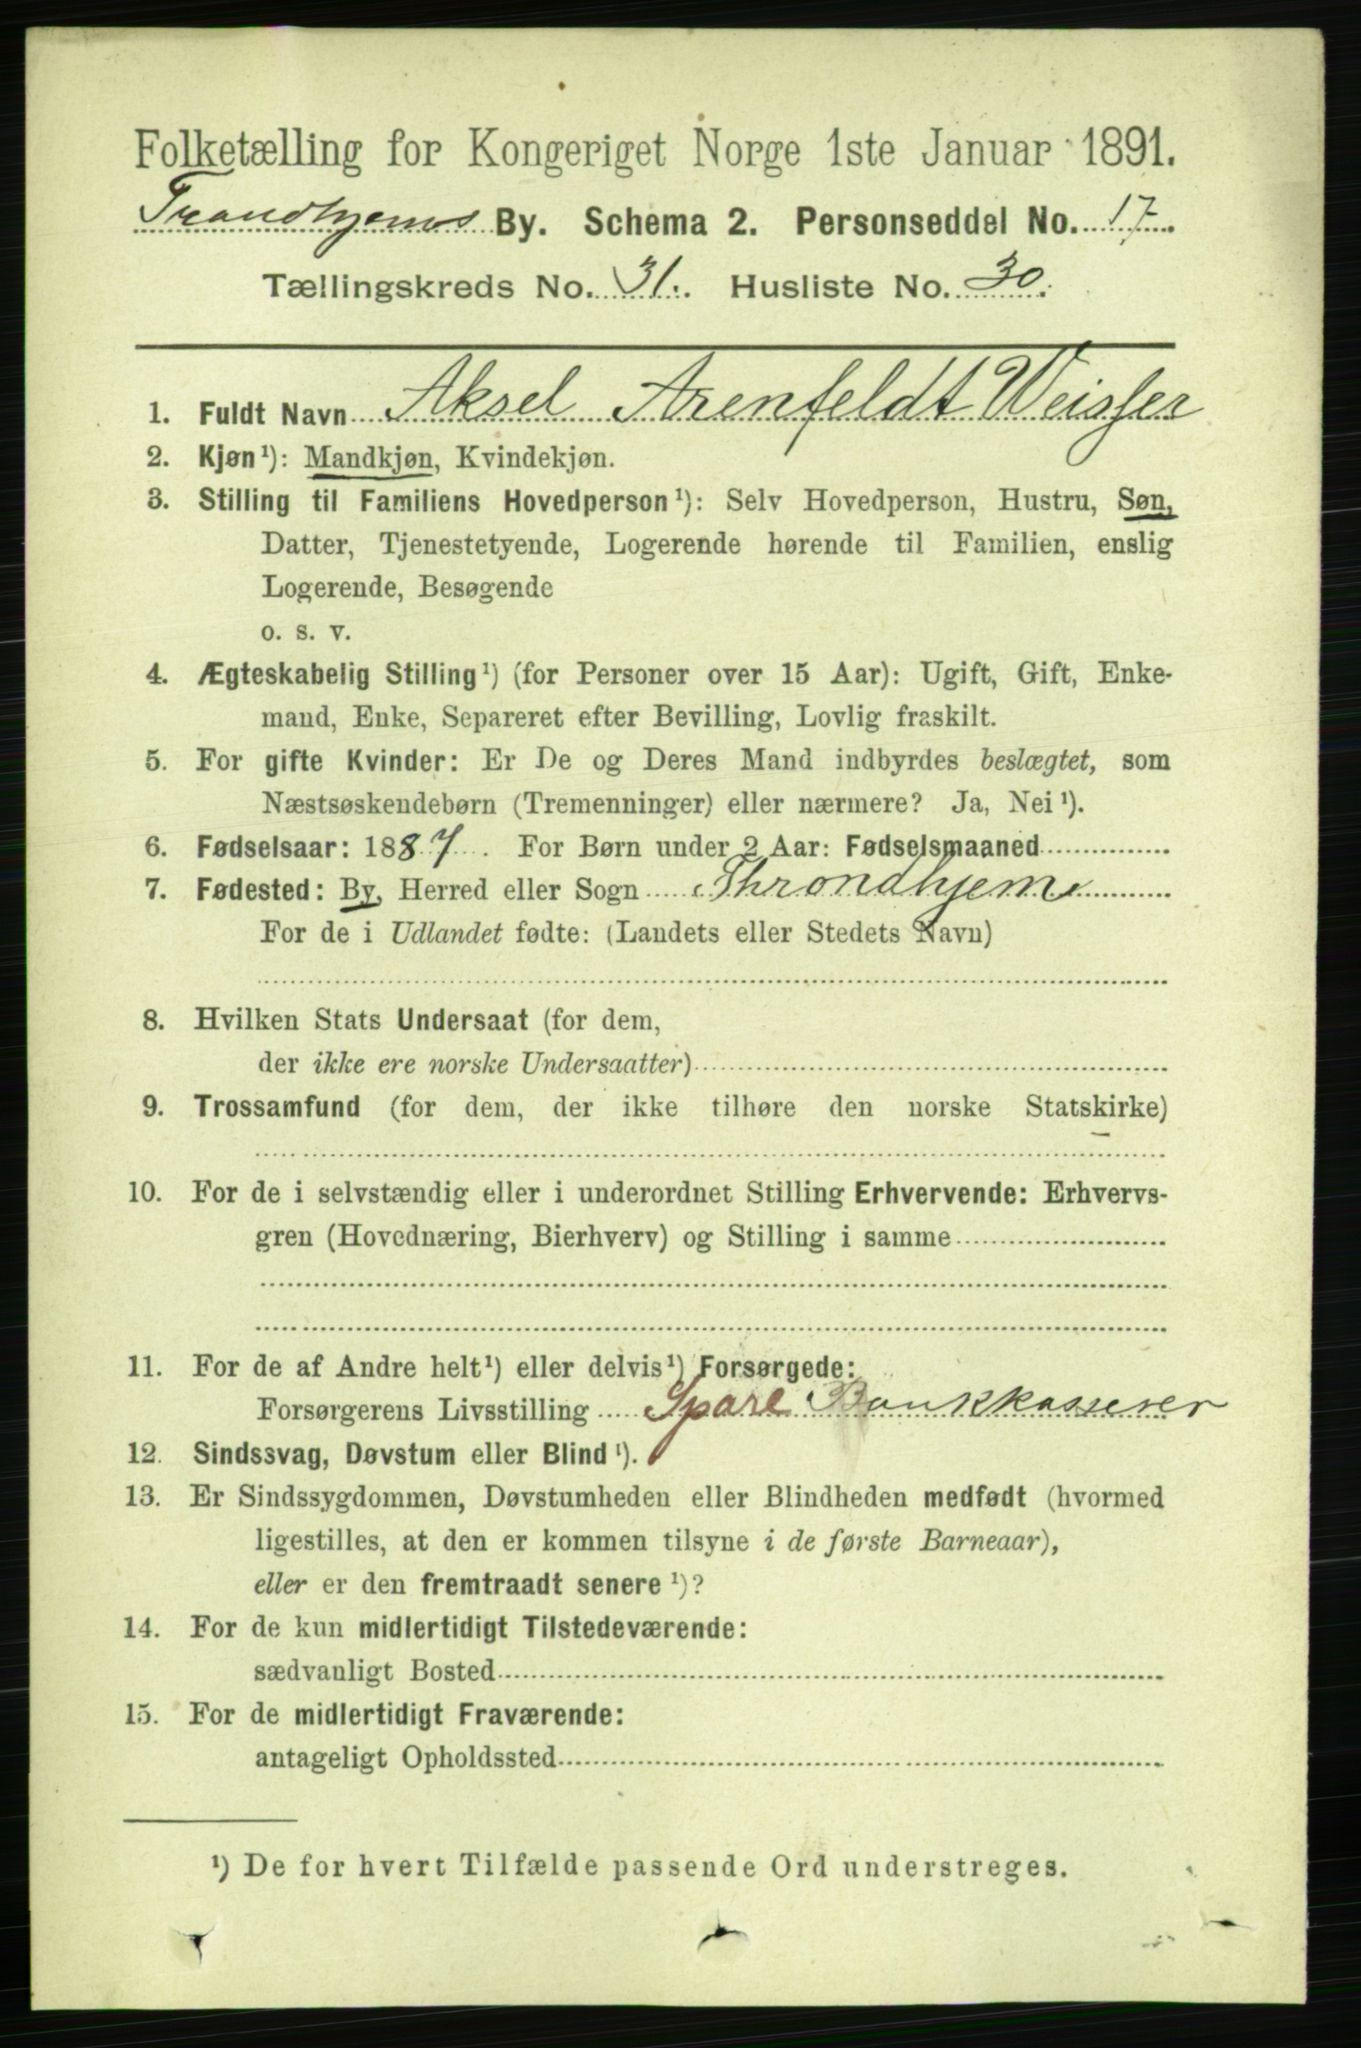 Folketælling for Kongeriget Norge 1ste Januar 1891.
Trondhjems By. Schema 2. Personseddel No. 17.
Tællingskreds No. 31. Husliste No. 30.
1. Fuldt Navn Aksel Arenfeldt Weisser
2. Kjøn¹): Mandkjøn, Kvindekjøn.
3. Stilling til Familiens Hovedperson¹): Selv Hovedperson, Hustru, Søn,
Datter, Tjenestetyende, Logerende hørende til Familien, enslig
Logerende, Besøgende
o. s. v.
4. Ægteskabelig Stilling¹) (for Personer over 15 Aar): Ugift, Gift, Enke-
mand, Enke, Separeret efter Bevilling, Lovlig fraskilt.
5. For gifte Kvinder: Er De og Deres Mand indbyrdes beslægtet, som
Næstsøskendebørn (Tremenninger) eller nærmere? Ja, Nei¹).
6. Fødselsaar: 1887. For Børn under 2 Aar: Fødselsmaaned
7. Fødested: By, Herred eller Sogn Throndhjem
For de i Udlandet fødte: (Landets eller Stedets Navn)
8. Hvilken Stats Undersaat (for dem,
der ikke ere norske Undersaatter)
9. Trossamfund (for dem, der ikke tilhøre den norske Statskirke)
10. For de i selvstændig eller i underordnet Stilling Erhvervende: Erhvervs-
gren (Hovednæring, Bierhverv) og Stilling i samme
11. For de af Andre helt¹) eller delvis¹) Forsørgede:
Forsørgerens Livsstilling Spare Bankkasserer
12. Sindssvag, Døvstum eller Blind¹).
13. Er Sindssygdommen, Døvstumheden eller Blindheden medfødt (hvormed
ligestilles, at den er kommen tilsyne i de første Barneaar),
eller er den fremtraadt senere¹)?
14. For de kun midlertidigt Tilstedeværende:
sædvanligt Bosted
15. For de midlertidigt Fraværende:
antageligt Opholdssted
¹) De for hvert Tilfælde passende Ord understreges.